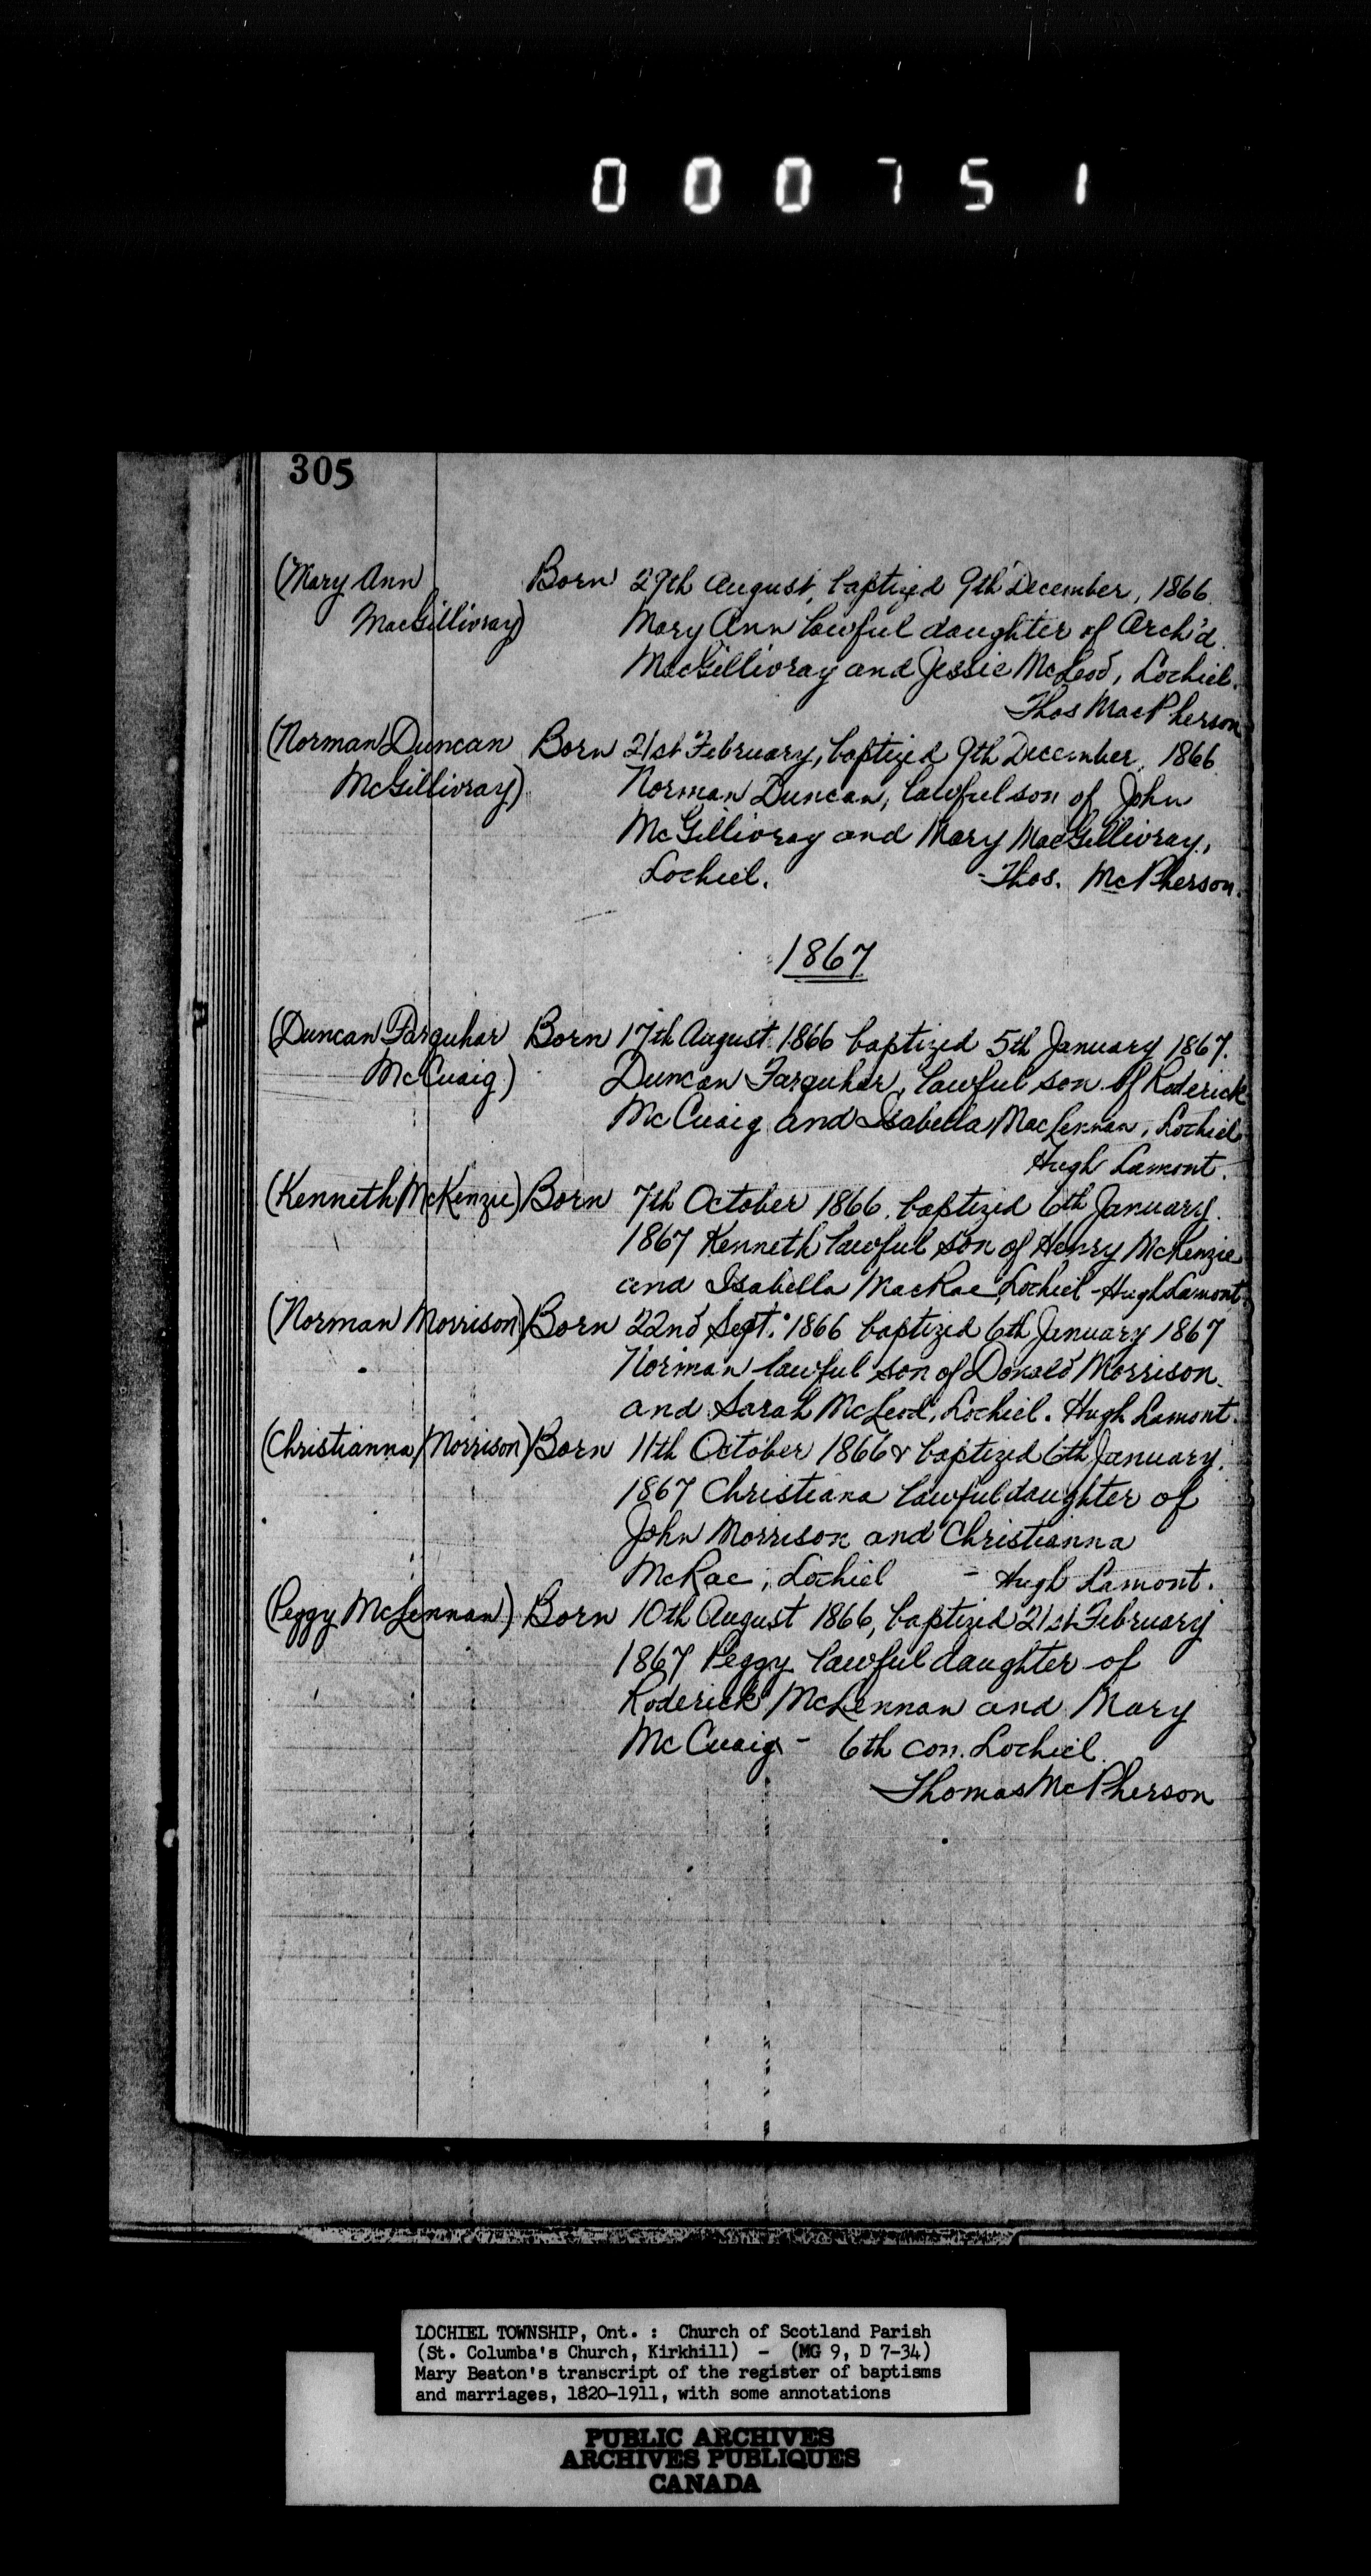 000751
305
(Mary Ann Born 29th August, baptized 9th December, 1866.
MacGillivray) Mary Ann lawful daughter of Arch'd.
MacGillivray and Jessie McLeod, Lochiel.
Thos MacPherson
(Norman Duncan Born 21st February, baptized 9th December, 1866.
McGillivray) Norman Duncan, lawful son of John
McGillivray and Mary MacGillivray,
Lochiel. - Thos. McPherson.
1867
(Duncan Farquhar Born 17th August 1866 baptized 5th January 1867.
McCuaig) Duncan Farquhar, lawful son of Roderick
McCuaig and Isabella MacLennan, Lochiel
Hugh Lamont.
(Kenneth McKenzie) Born 7th October 1866, baptized 6th January.
1867 Kenneth lawful son of Henry McKenzie
and Isabella MacRae, Lochiel - Hugh Lamont.
(Norman Morrison) Born 22nd Sept. 1866 baptized 6th January 1867
Norman lawful son of Donald Morrison
and Sarah McLeod, Lochiel. Hugh Lamont.
(Christianna Morrison) Born 11th October 1866 & baptized 6th January.
1867 Christiana lawful daughter of
John Morrison and Christianna
McRae, Lochiel - Hugh Lamont.
(Peggy McLennan) Born 10th August 1866, baptized 21st February
1867 Peggy lawful daughter of
Roderick McLennan and Mary
McCuaig - 6th con. Lochiel.
Thomas McPherson
LOCHIEL TOWNSHIP, Ont. : Church of Scotland Parish
(St. Columba's Church, Kirkhill) - (MG 9, D 7-34)
Mary Beaton's transcript of the register of baptisms
and marriages, 1820-1911, with some annotations
PUBLIC ARCHIVES
ARCHIVES PUBLIQUES
CANADA